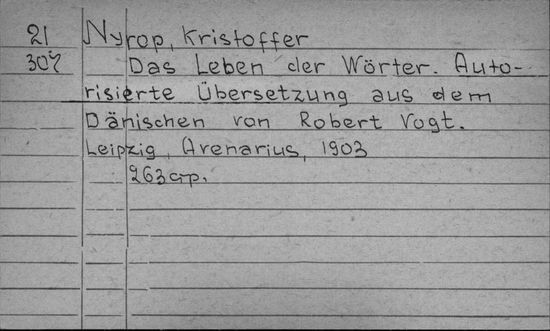 21 Nyrop, Kristoffer
307 Das Leben der Wörter. Auto-
risierte Übersetzung aus dem
Dänischen von Robert Vogt.
Leipzig, Avenarius, 1903
263 стр.